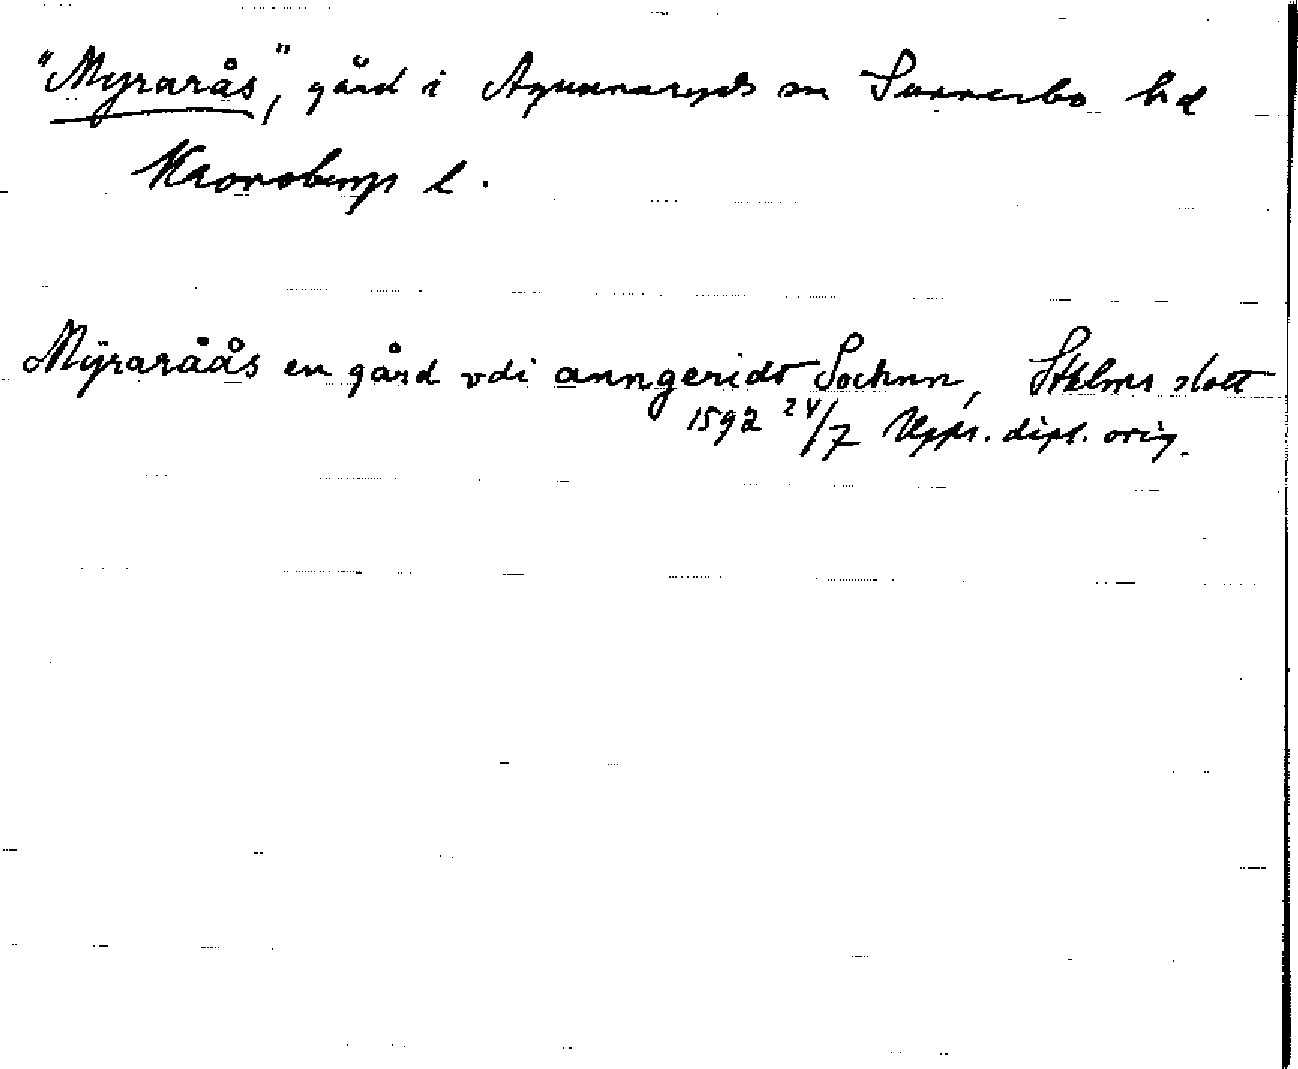 "Myrarås", gård i Agunnaryds sn Sunnerbo hd
Kronobergs l.
Mÿraråås en gård vdi anngeridt Sochnn, Sthlms slott
1592 24/7 Upps. dipl. orig.